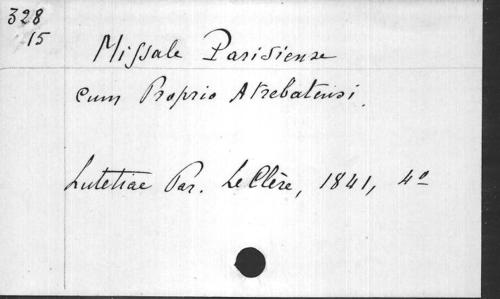 328
15
Missale Parisiense
cum Proprio Atrebatensi.
Lutetiae Par. Le Clère, 1841, 4º